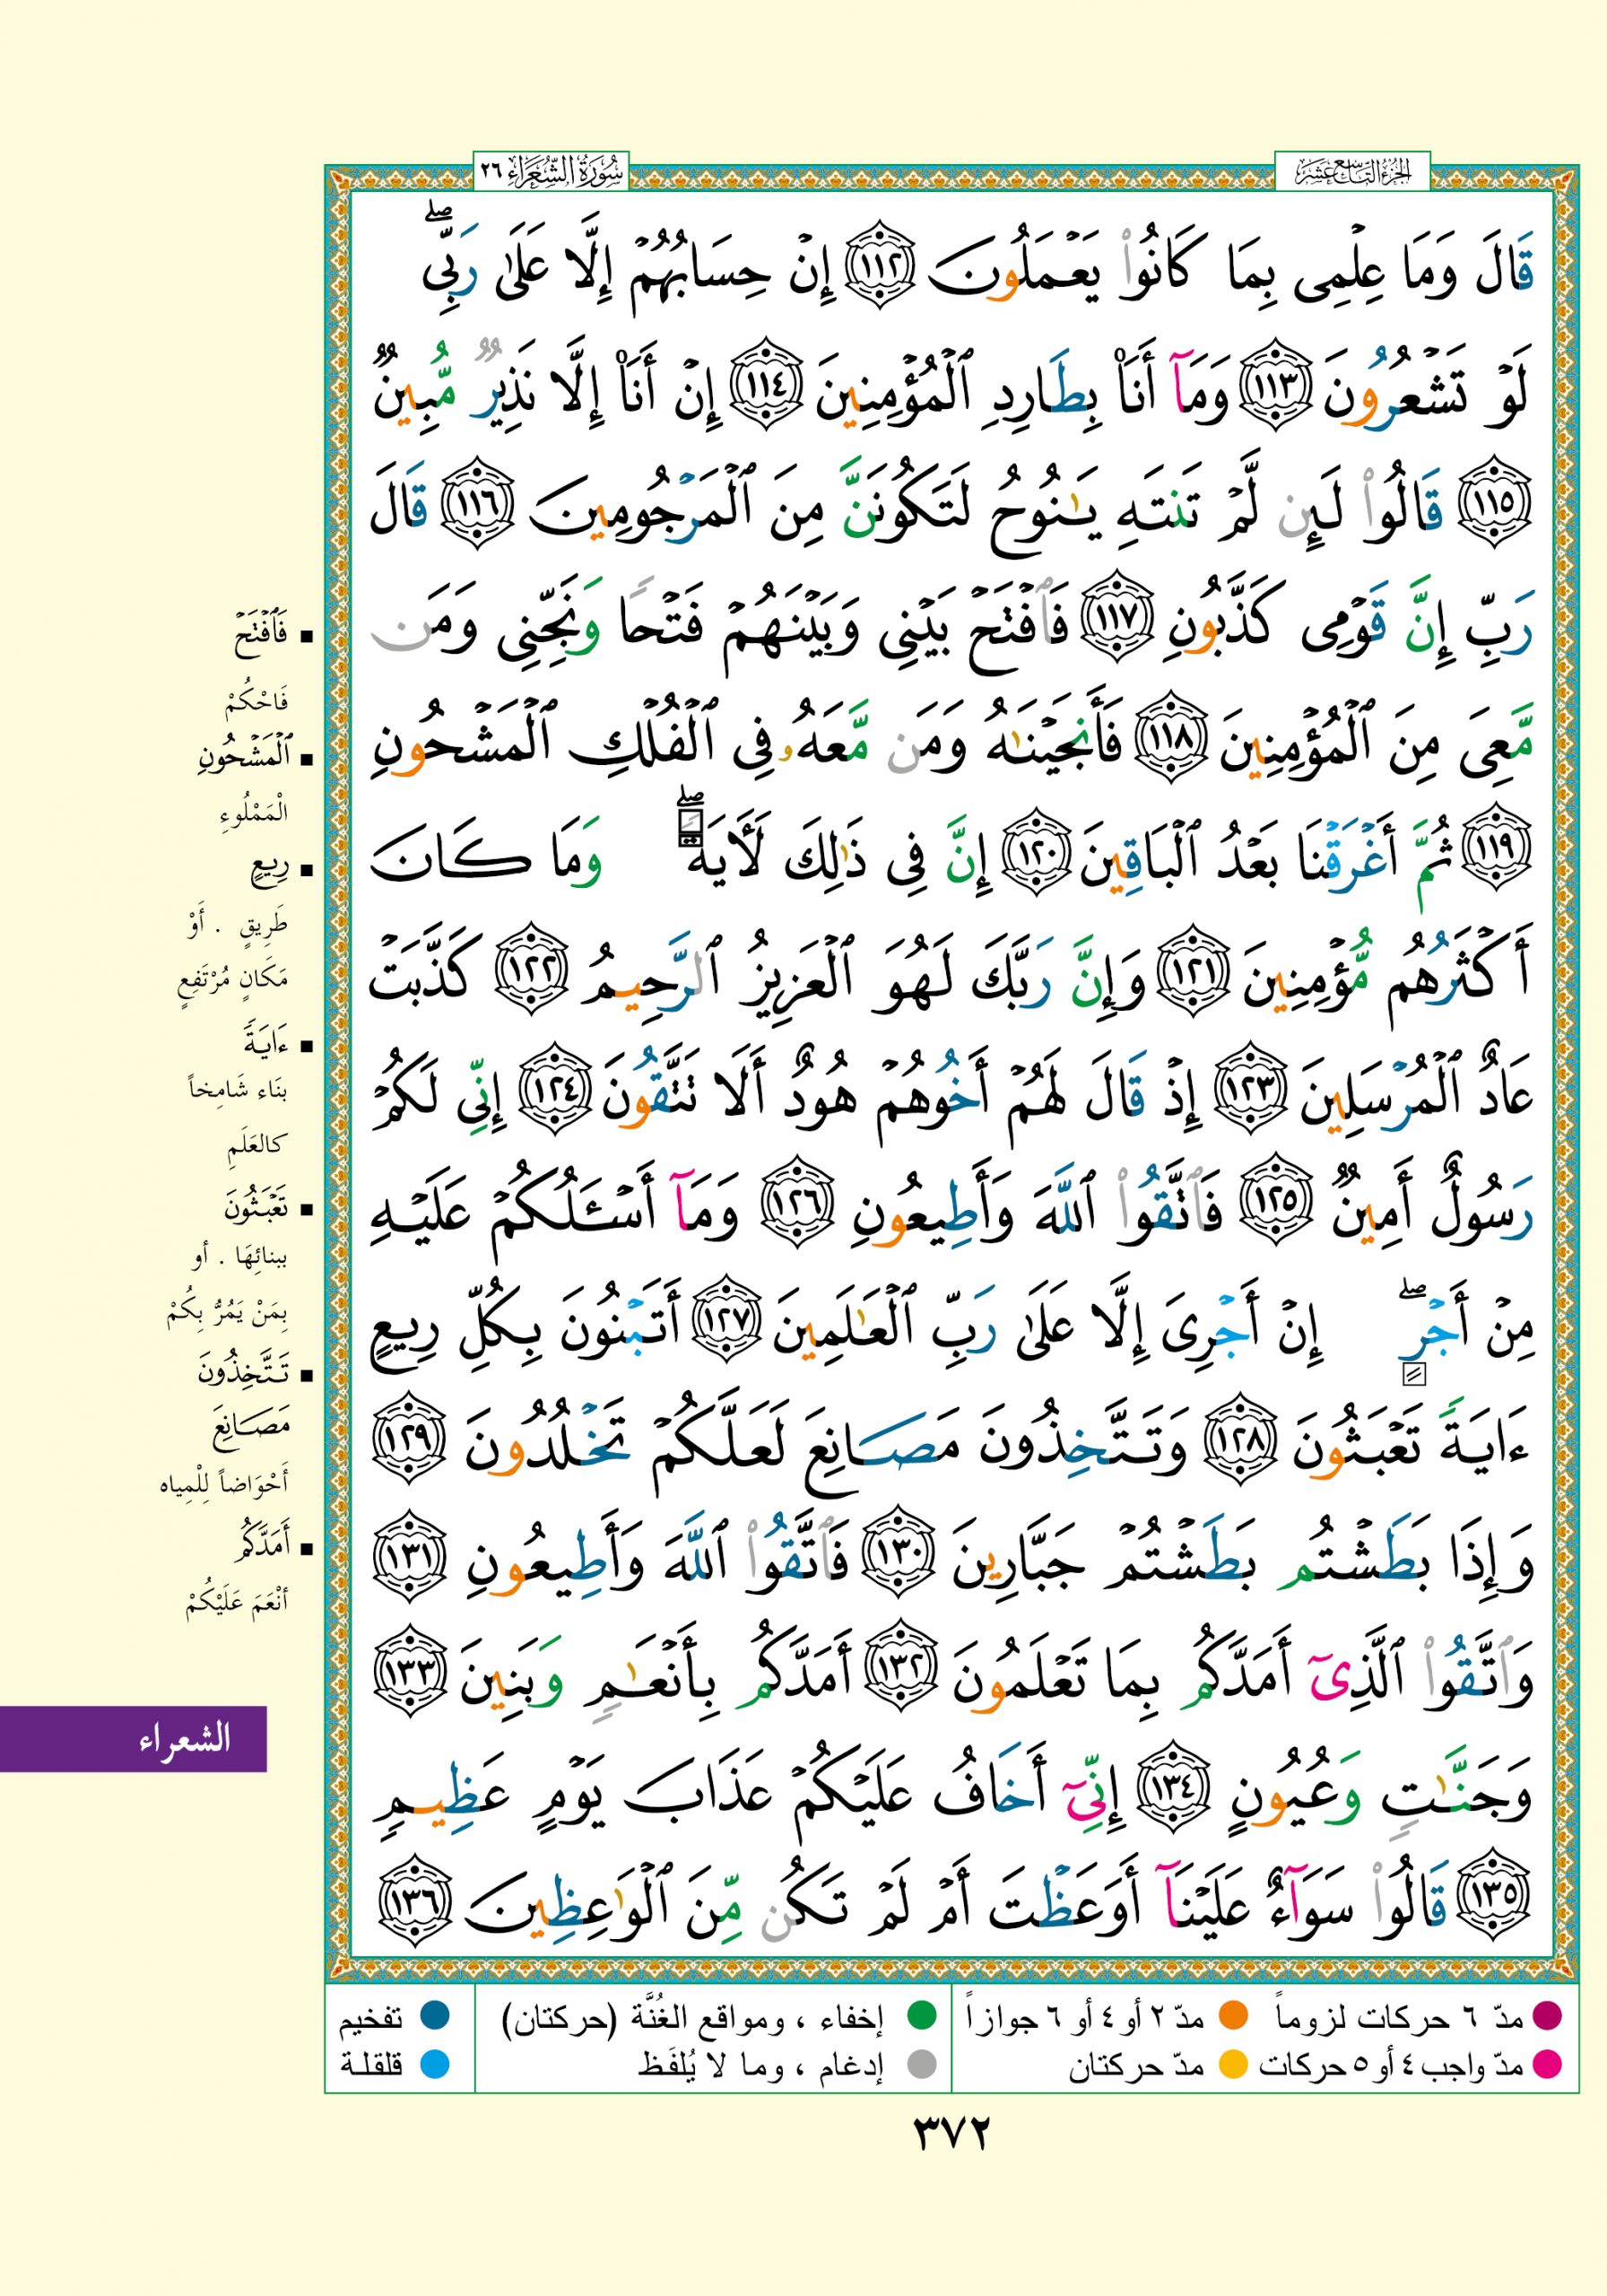 الجزء التاسع عشر
سورة الشعراء ٢٦
قَالَ وَمَا عِلْمِى بِمَا كَانُوا۟ يَعْمَلُونَ ١١٢ إِنْ حِسَابُهُمْ إِلَّا عَلَىٰ رَبِّى ۖ
لَوْ تَشْعُرُونَ ١١٣ وَمَآ أَنَا۠ بِطَارِدِ ٱلْمُؤْمِنِينَ ١١٤ إِنْ أَنَا۠ إِلَّا نَذِيرٌ مُّبِينٌ
١١٥ قَالُوا۟ لَئِن لَّمْ تَنتَهِ يَـٰنُوحُ لَتَكُونَنَّ مِنَ ٱلْمَرْجُومِينَ ١١٦ قَالَ
رَبِّ إِنَّ قَوْمِى كَذَّبُونِ ١١٧ فَٱفْتَحْ بَيْنِى وَبَيْنَهُمْ فَتْحًا وَنَجِّنِى وَمَن
مَّعِىَ مِنَ ٱلْمُؤْمِنِينَ ١١٨ فَأَنجَيْنَـٰهُ وَمَن مَّعَهُۥ فِى ٱلْفُلْكِ ٱلْمَشْحُونِ
١١٩ ثُمَّ أَغْرَقْنَا بَعْدُ ٱلْبَاقِينَ ١٢٠ إِنَّ فِى ذَٰلِكَ لَـَٔايَةً ۖ وَمَا كَانَ
أَكْثَرُهُم مُّؤْمِنِينَ ١٢١ وَإِنَّ رَبَّكَ لَهُوَ ٱلْعَزِيزُ ٱلرَّحِيمُ ١٢٢ كَذَّبَتْ
عَادٌ ٱلْمُرْسَلِينَ ١٢٣ إِذْ قَالَ لَهُمْ أَخُوهُمْ هُودٌ أَلَا تَتَّقُونَ ١٢٤ إِنِّى لَكُمْ
رَسُولٌ أَمِينٌ ١٢٥ فَٱتَّقُوا۟ ٱللَّهَ وَأَطِيعُونِ ١٢٦ وَمَآ أَسْـَٔلُكُمْ عَلَيْهِ
مِنْ أَجْرٍ ۖ إِنْ أَجْرِىَ إِلَّا عَلَىٰ رَبِّ ٱلْعَـٰلَمِينَ ١٢٧ أَتَبْنُونَ بِكُلِّ رِيعٍ
ءَايَةً تَعْبَثُونَ ١٢٨ وَتَتَّخِذُونَ مَصَانِعَ لَعَلَّكُمْ تَخْلُدُونَ ١٢٩
وَإِذَا بَطَشْتُم بَطَشْتُمْ جَبَّارِينَ ١٣٠ فَٱتَّقُوا۟ ٱللَّهَ وَأَطِيعُونِ ١٣١
وَٱتَّقُوا۟ ٱلَّذِىٓ أَمَدَّكُم بِمَا تَعْلَمُونَ ١٣٢ أَمَدَّكُم بِأَنْعَـٰمٍ وَبَنِينَ ١٣٣
وَجَنَّـٰتٍ وَعُيُونٍ ١٣٤ إِنِّىٓ أَخَافُ عَلَيْكُمْ عَذَابَ يَوْمٍ عَظِيمٍ
١٣٥ قَالُوا۟ سَوَآءٌ عَلَيْنَآ أَوَعَظْتَ أَمْ لَمْ تَكُن مِّنَ ٱلْوَٰعِظِينَ ١٣٦
▪ فَٱفْتَحْ
فَاحْكُمْ
▪ ٱلْمَشْحُونِ
الْمَمْلُوءِ
▪ رِيعٍ
طَرِيقٍ . أَوْ
مَكَانٍ مُرْتَفِعٍ
▪ ءَايَةً
بنَاء شَامِخاً
كالعَلَمِ
▪ تَعْبَثُونَ
ببنائِهَا . أو
بِمَنْ يَمُرُّ بِكُمْ
▪ تَتَّخِذُونَ
مَصَانِعَ
أَحْوَاضاً لِلْمِياه
▪ أَمَدَّكُم
أنْعَمَ عَلَيْكُمْ
الشعراء
مدّ ٦ حركات لزوماً مدّ ٢ أو ٤ أو ٦ جوازاً إخفاء ، ومواقع الغُنَّة (حركتان) تفخيم
مدّ واجب ٤ أو ٥ حركات مدّ حركتان إدغام ، وما لا يُلفَظ قلقلة
٣٧٢